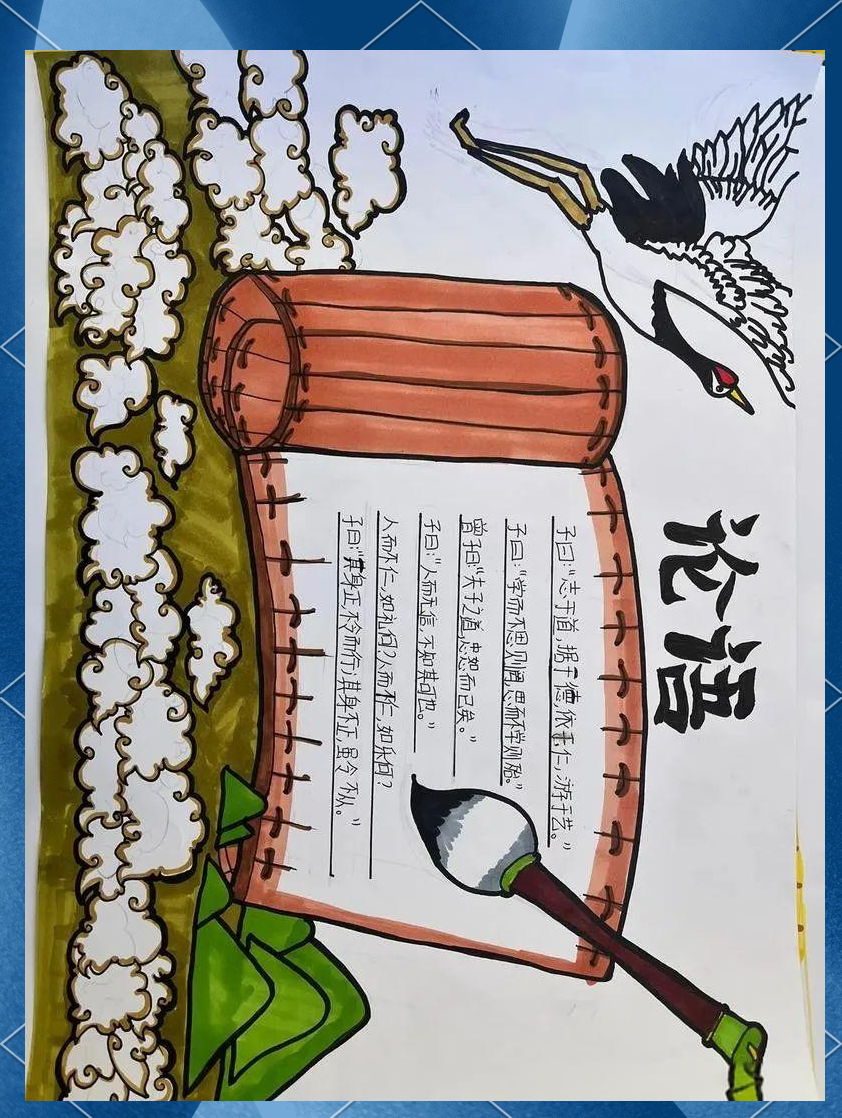 论语
子曰:“志于道,据于德,依于仁,游于艺。”
子曰:“学而不思则罔,思而不学则殆。”
曾子曰:“夫子之道,忠恕而已矣。”
子曰:“人而无信,不知其可也。”
人而不仁,如礼何?人而不仁,如乐何?
子曰:“其身正,不令而行;其身不正,虽令不从。”